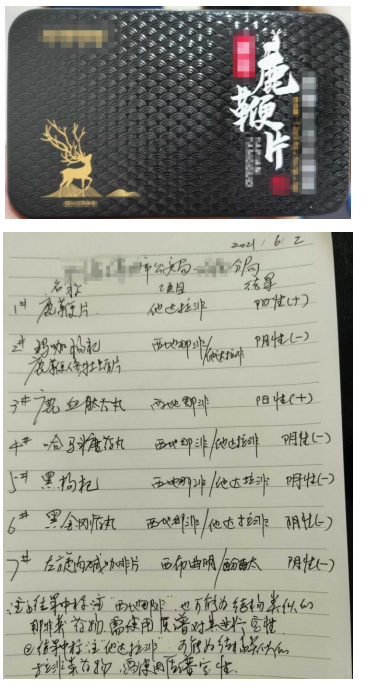 鹿鞭片
2021/6/2
市公安局 分局
名称 项目 结果
1# 鹿鞭片 他达拉非 阳性(+)
2# 玛咖枸杞 西地那非/他达拉非 阴性(-)
鹿鞭人参牡蛎片
3# 鹿血肽丸 西地那非 阳性(+)
4# 哈马来鹿丸 西地那非/他达拉非 阴性(-)
5# 黑枸杞 西地那非/他达拉非 阴性(-)
6# 黑金刚丸 西地那非/他达拉非 阴性(-)
7# 左旋肉碱咖啡片 西布曲明/酚酞 阴性(-)
注:①结果中标注“西地那非”,也可能为结构类似的
那非类药物,需使用质谱对其进行定性
②结果中标注“他达拉非”,可能为结构类似的
拉非类药物,需使用质谱定性.